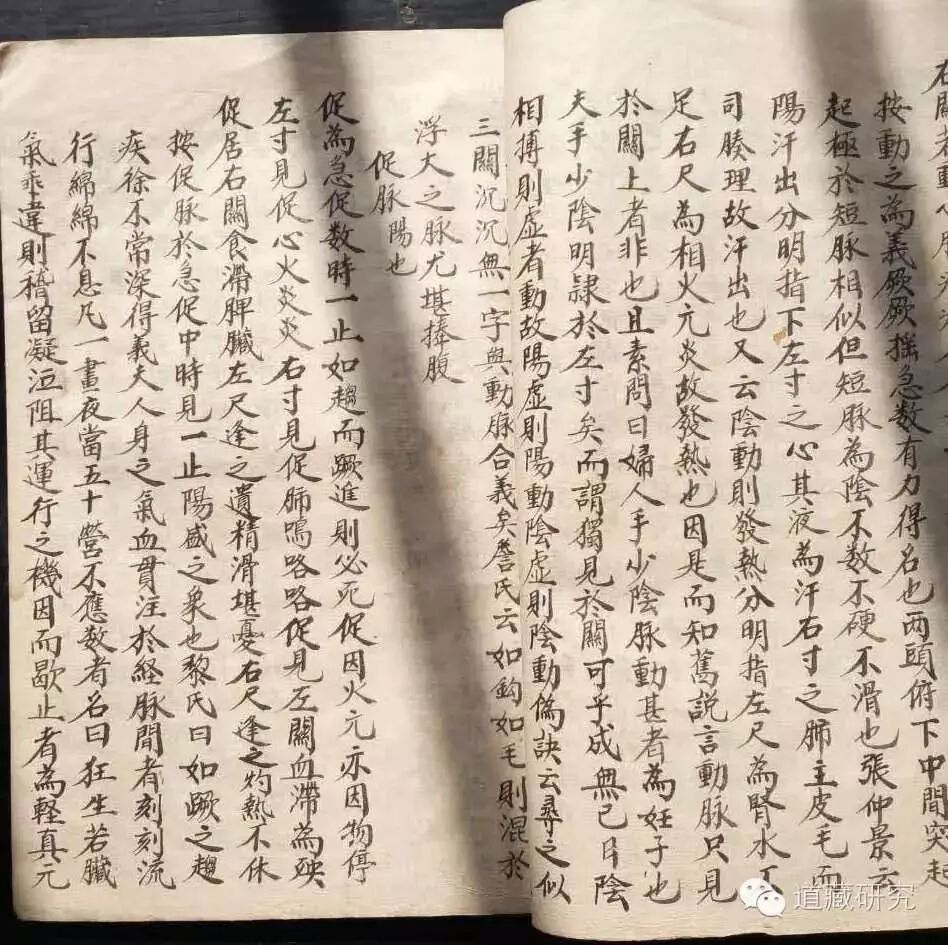 按動之為義厥厥搖急数有力得名也两頭俯下中間突起
起極於短脉相似但短脉為陰不数不硬不滑也張仲景云
陽汗出分明指下左寸之心其液為汗右寸之肺主皮毛而
司腠理故汗出也又云陰動則發熱分明指左尺為腎水不
足右尺為相火亢炎故發熱也因是而知舊説言動脉只見
於關上者非也且素問曰婦人手少陰脉動甚者為妊子也
夫手少陰明隷於左寸矣而謂獨見於關可乎成無己曰陰
相搏則虛者動故陽虛則陽動陰虛則陰動偽訣云尋之似
三關沉沉無一字與動脉合義矣詹氏云如鈎如毛則混於
浮大之脉尤堪捧腹
促脉陽也
促為急促数時一止如趨而蹶進則必死促因火亢亦因物停
左寸見促心火炎炎右寸見促肺鳴咯咯促見左關血滯為殃
促居右關食滞脾臟左尺逢之遺精滑堪憂右尺逢之灼熱不休
按促脉於急促中時見一止陽盛之象也黎氏曰如蹶之趨
疾徐不常深得義夫人身之氣血貫注於経脉間者刻刻流
行綿綿不息凡一晝夜當五十營不應数者名曰狂生若臟
氣乖違則稽留凝泣阻其運行之機因而歇止者為軽真元
道藏研究